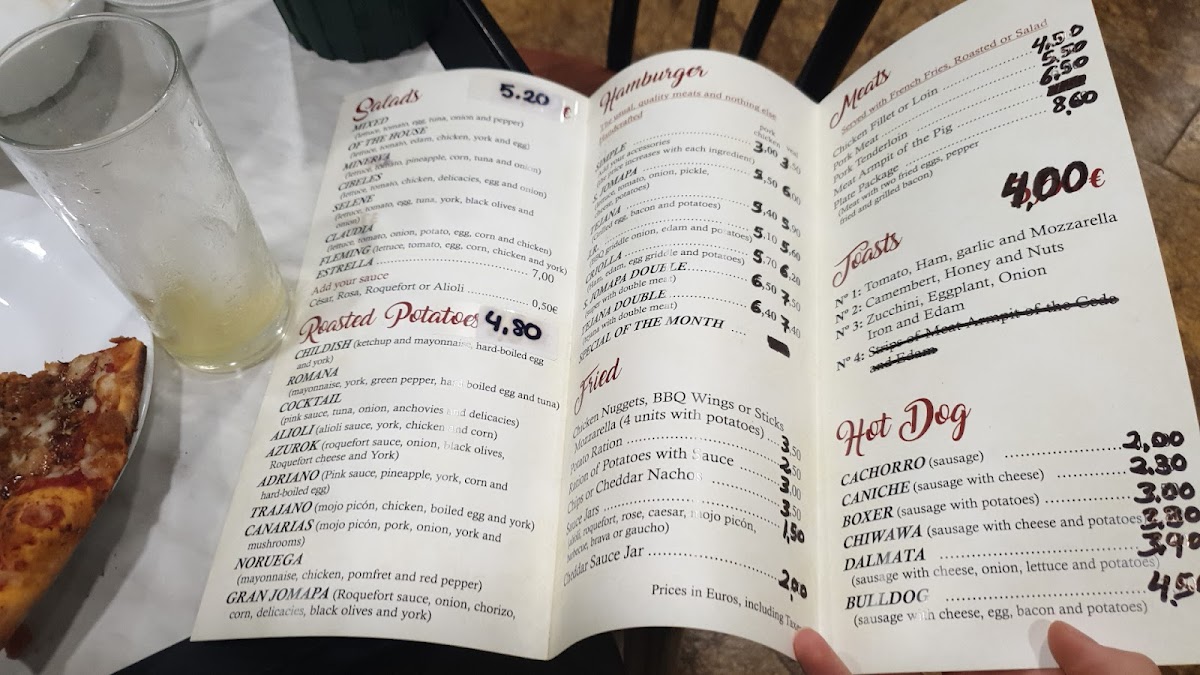 Salads 5.20 €
MIXED
(lettuce, tomato, egg, tuna, onion and pepper)
OF THE HOUSE
(lettuce, tomato, edam, chicken, york and egg)
MINERVA
(lettuce, tomato, pineapple, corn, tuna and onion)
CIBELES
(lettuce, tomato, chicken, delicacies, egg and onion)
SELENE
(lettuce, tomato, egg, tuna, york, black olives and
onion)
CLAUDIA
(lettuce, tomato, onion, potato, egg, corn and chicken)
FLEMING (lettuce, tomato, egg, corn, chicken and york)
ESTRELLA 7,00
Add your sauce
César, Rosa, Roquefort or Alioli 0,50€
Roasted Potatoes 4,80
CHILDISH (ketchup and mayonnaise, hard-boiled egg
and york)
ROMANA
(mayonnaise, york, green pepper, hard boiled egg and tuna)
COCKTAIL
(pink sauce, tuna, onion, anchovies and delicacies)
ALIOLI (alioli sauce, york, chicken and corn)
AZUROK (roquefort sauce, onion, black olives,
Roquefort cheese and York)
ADRIANO (Pink sauce, pineapple, york, corn and
hard-boiled egg)
TRAJANO (mojo picón, chicken, boiled egg and york)
CANARIAS (mojo picón, pork, onion, york and
mushrooms)
NORUEGA
(mayonnaise, chicken, pomfret and red pepper)
GRAN JOMAPA (Roquefort sauce, onion, chorizo,
corn, delicacies, black olives and york)
Hamburger
The usual, quality meats and nothing else
Handcrafted
pork
chicken
SIMPLE 3,00 3,50
Add your accessories
(the price increases with each ingredient)
S. JOMAPA 5,50 6,00
tomato, onion, pickle,
cheese, potatoes)
TEJANA 5,40 5,90
egg, bacon and potatoes)
J.R. 5,10 5,60
(BBQ griddle onion, edam and potatoes)
CRIOLLA 5,70 6,20
(ham, edam, egg griddle and potatoes)
S. JOMAPA DOUBLE 6,50 7,50
with double meat)
TEJANA DOUBLE 6,40 7,40
with double meat)
SPECIAL OF THE MONTH
Fried
Chicken Nuggets, BBQ Wings or Sticks
Mozzarella (4 units with potatoes) 3,50
Potato Ration 2,50
Ration of Potatoes with Sauce 3,00
Chips or Cheddar Nachos 3,50
Sauce Jars 1,50
roquefort, rose, caesar, mojo picón,
barbecue, brava or gaucho)
Cheddar Sauce Jar 2,00
Prices in Euros, including
Meats
Served with French Fries, Roasted or Salad
Chicken Fillet or Loin 4.50
Pork Meat 5.50
Pork Tenderloin 6.50
Meat Armpit of the Pig
Plate Package 8,60
(Meat with two fried eggs, pepper
fried and grilled bacon)
4,00 €
Toasts
Nº 1: Tomato, Ham, garlic and Mozzarella
Nº 2: Camembert, Honey and Nuts
Nº 3: Zucchini, Eggplant, Onion
Iron and Edam
Nº 4: Strips of Meat Armpit of the Cedo
and Edam
Hot Dog
CACHORRO (sausage) 2,00
CANICHE (sausage with cheese) 2.80
BOXER (sausage with potatoes) 3,00
CHIWAWA (sausage with cheese and potatoes)
DALMATA 3,90
(sausage with cheese, onion, lettuce and potatoes)
BULLDOG
(sausage with cheese, egg, bacon and potatoes)